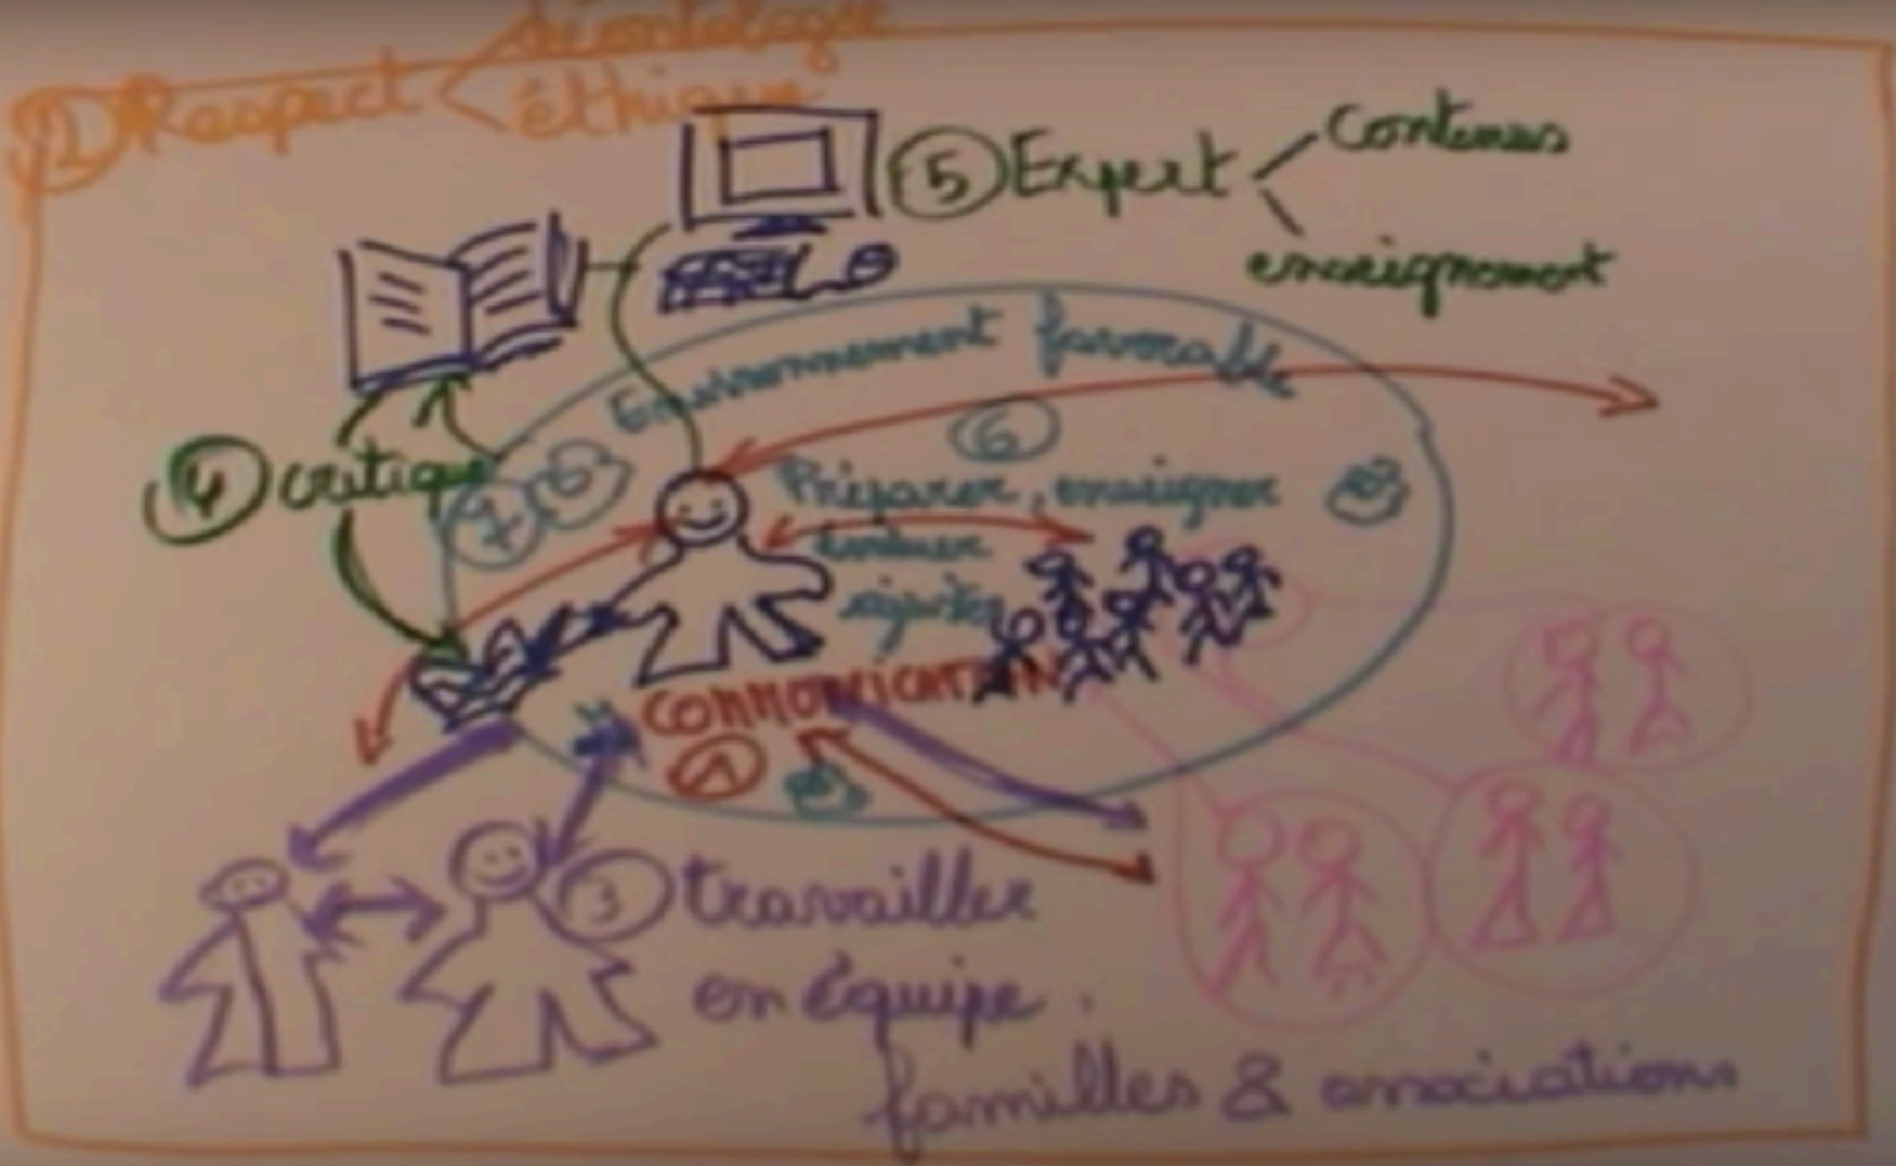 déontologie
② Respect
éthique
⑤ Expert
contenus
enseignement
Environnement favorable
④ critique
⑦
⑥
Préparer, enseigner
évaluer
ajuster
COMMUNICATION
①
③ travailler
en équipe.
familles & associations